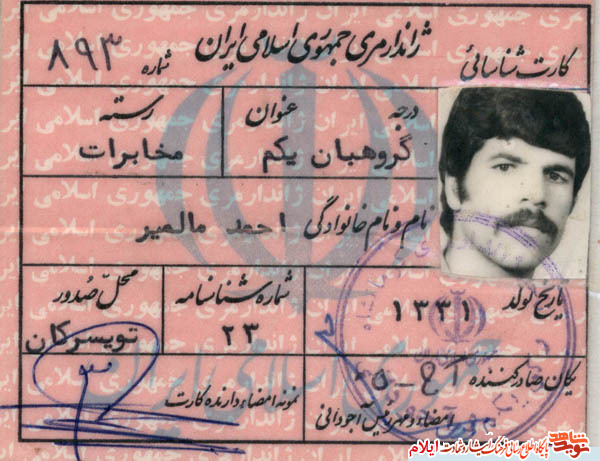 ژاندارمری جمهوری اسلامی ایران
کارت شناسائی
شماره ۸۹۳
درجه عنوان
گروهبان یکم
رسته
مخابرات
نام و نام خانوادگی احمد مالمیر
تاریخ تولد ۱۳۳۱
شماره شناسنامه
۲۳
محل صدور
تویسرکان
یکان صادر کننده
امضاء و مهر رئیس آجودانی
نمونه امضاء دارنده کارت
نوید شاهد
ایلام